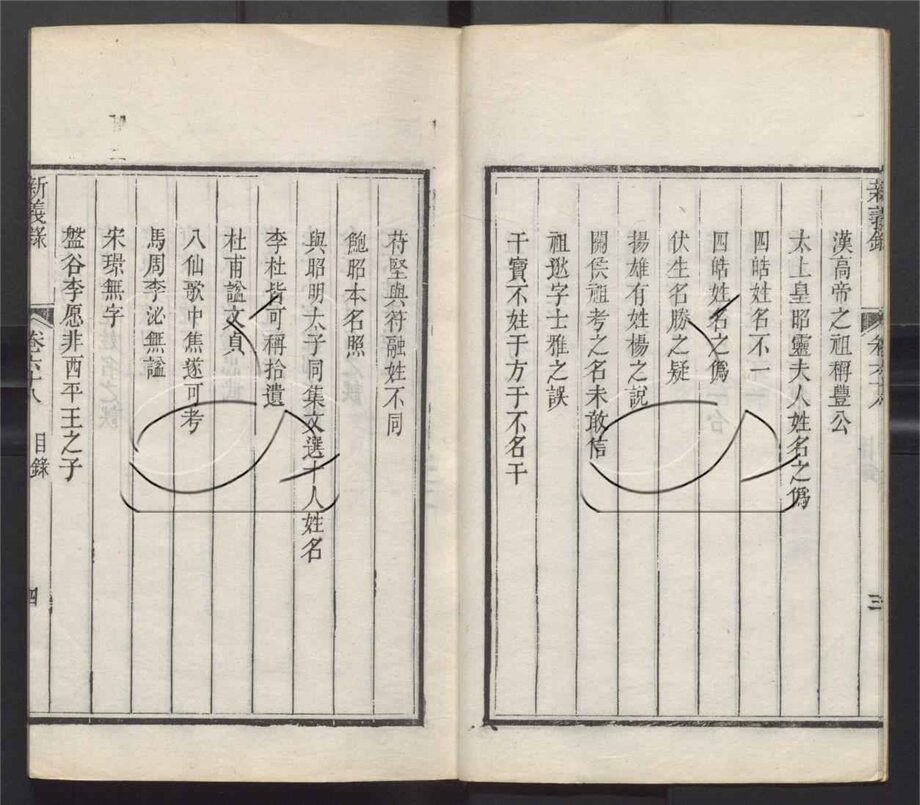 新義錄
漢高帝之祖稱豐公
太上皇昭靈夫人姓名之僞
四皓姓名不一
四皓姓名之僞
伏生名勝之疑
揚雄有姓楊之說
關侯祖考之名未敢信
祖逖字士雅之誤
干寶不姓于方于不名干
三
苻堅與符融姓不同
鮑昭本名照
與昭明太子同集文選十人姓名
李杜皆可稱拾遺
杜甫謚文貞
八仙歌中焦遂可考
馬周李泌無謚
宋璟無字
盤谷李愿非西平王之子
新義錄
卷六十八
目錄
四